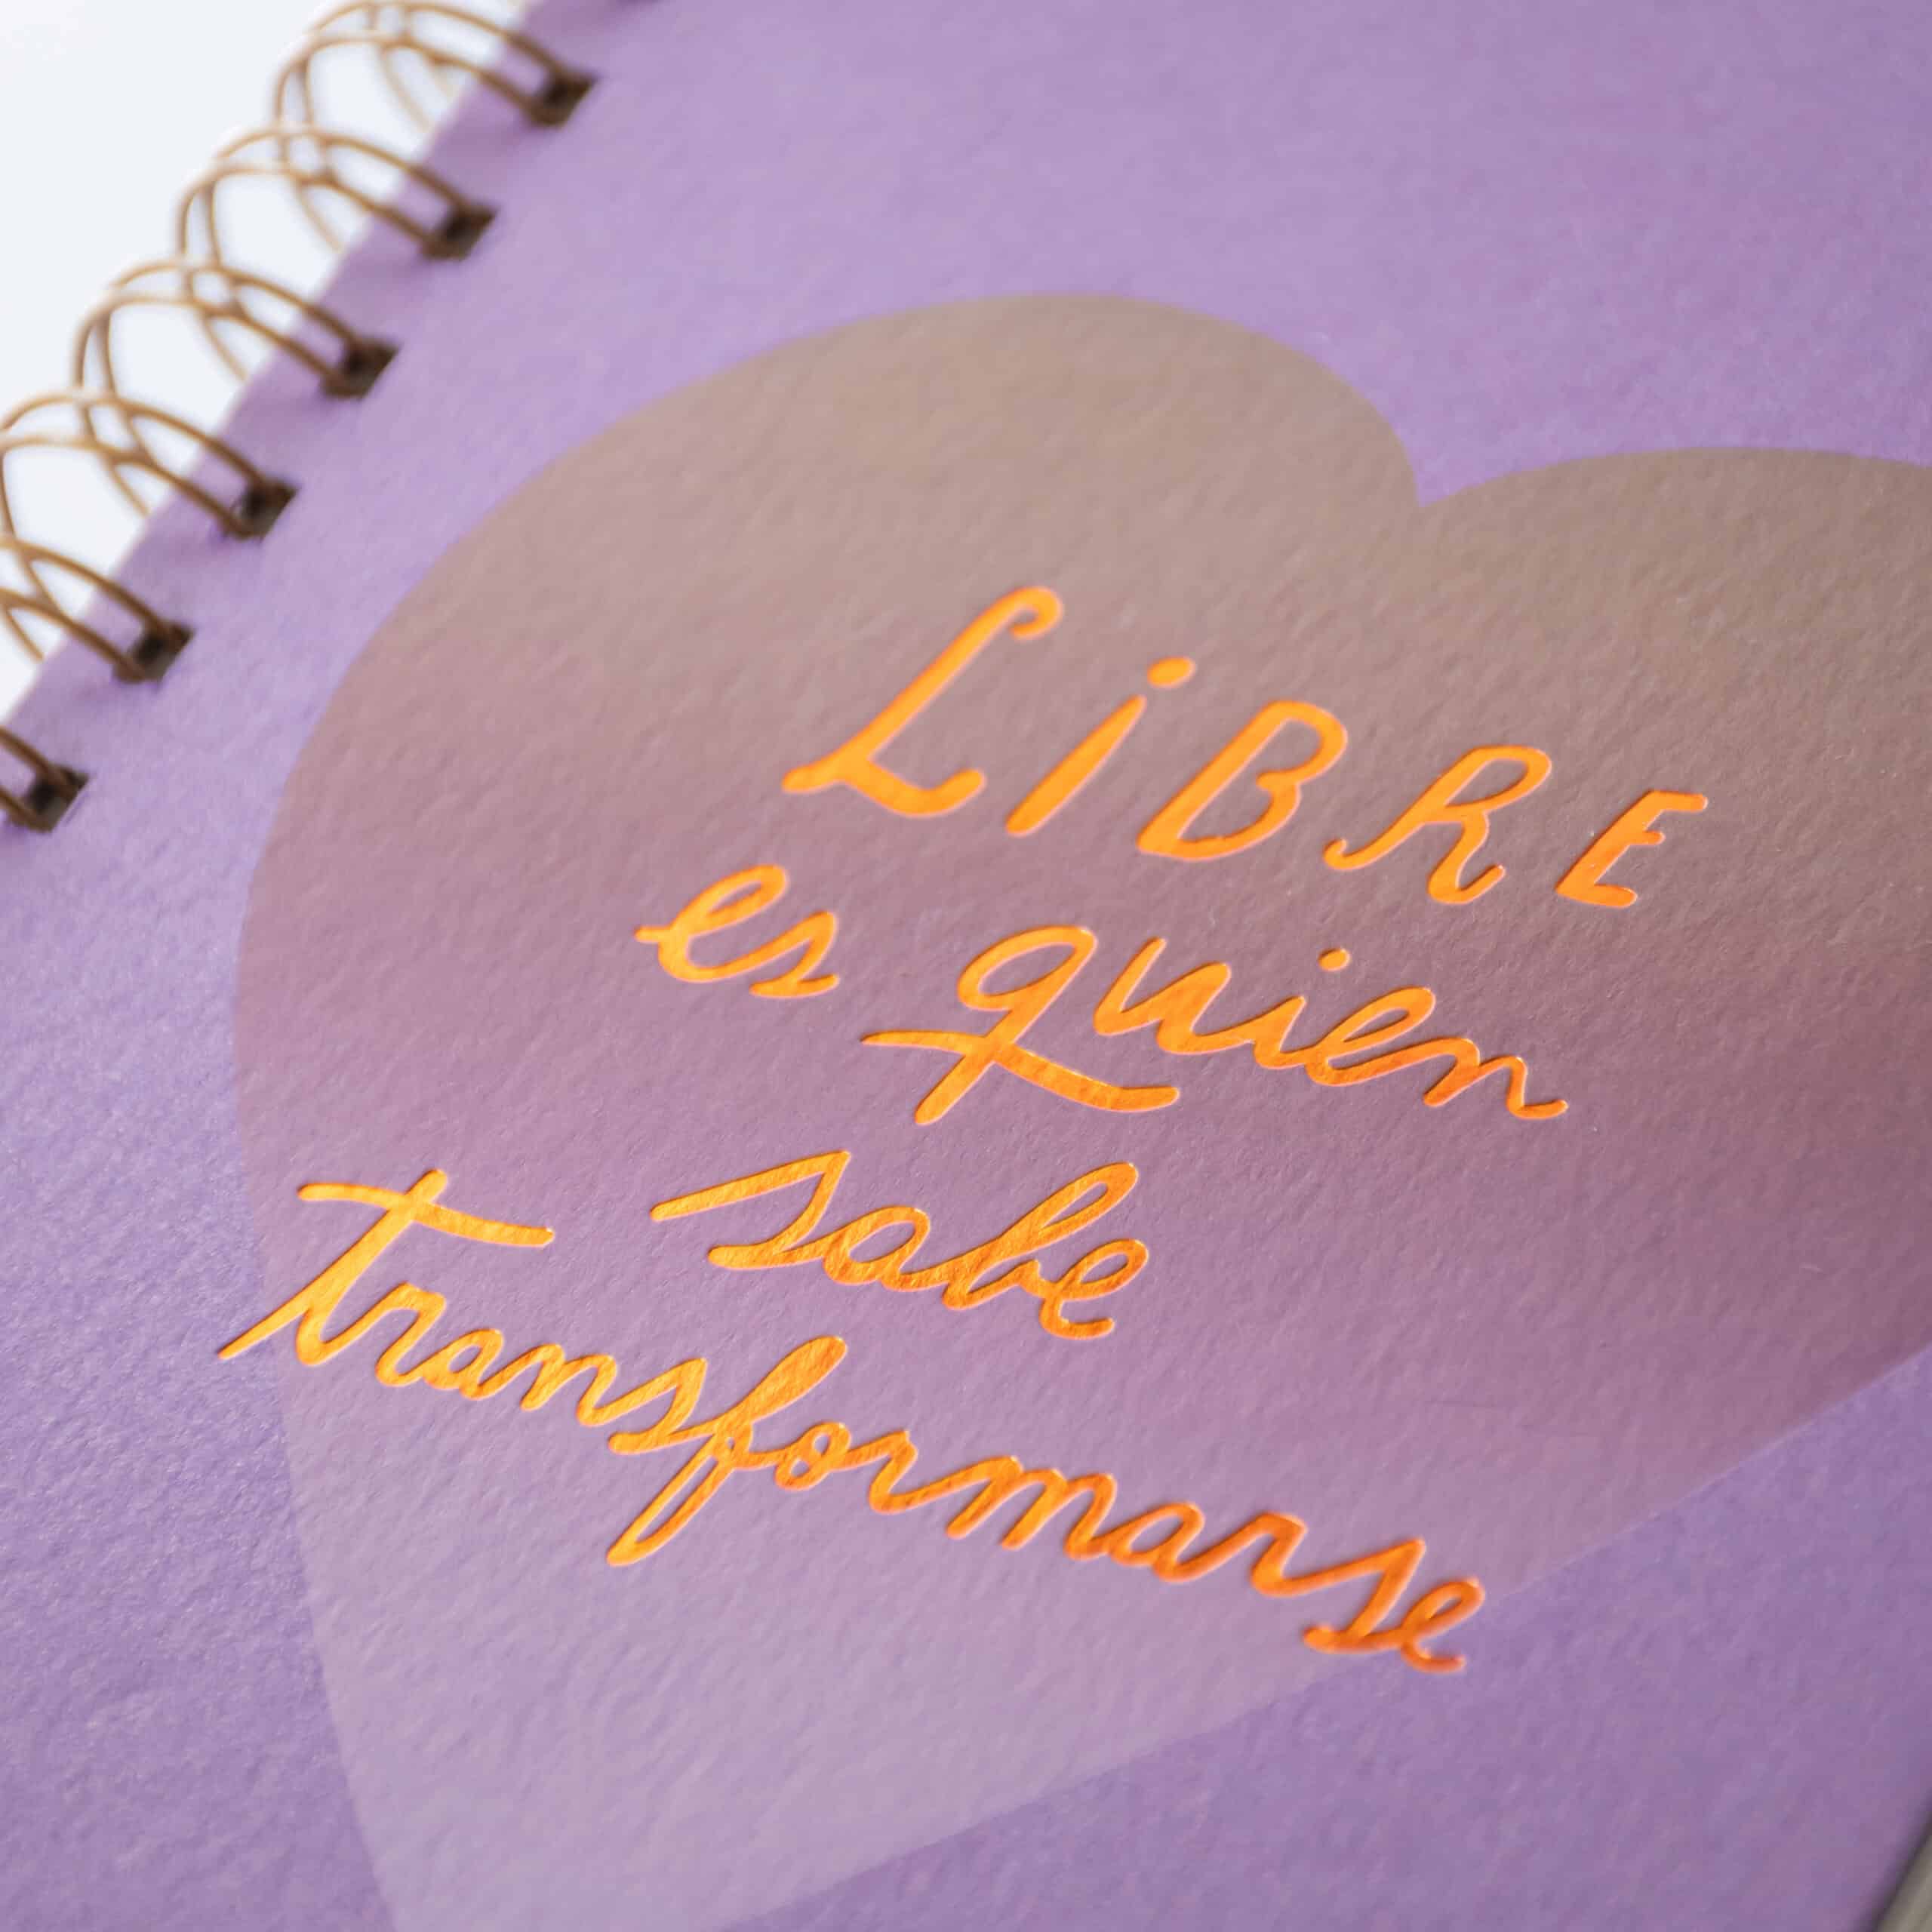 LiBRE
es quien
sabe
transformarse